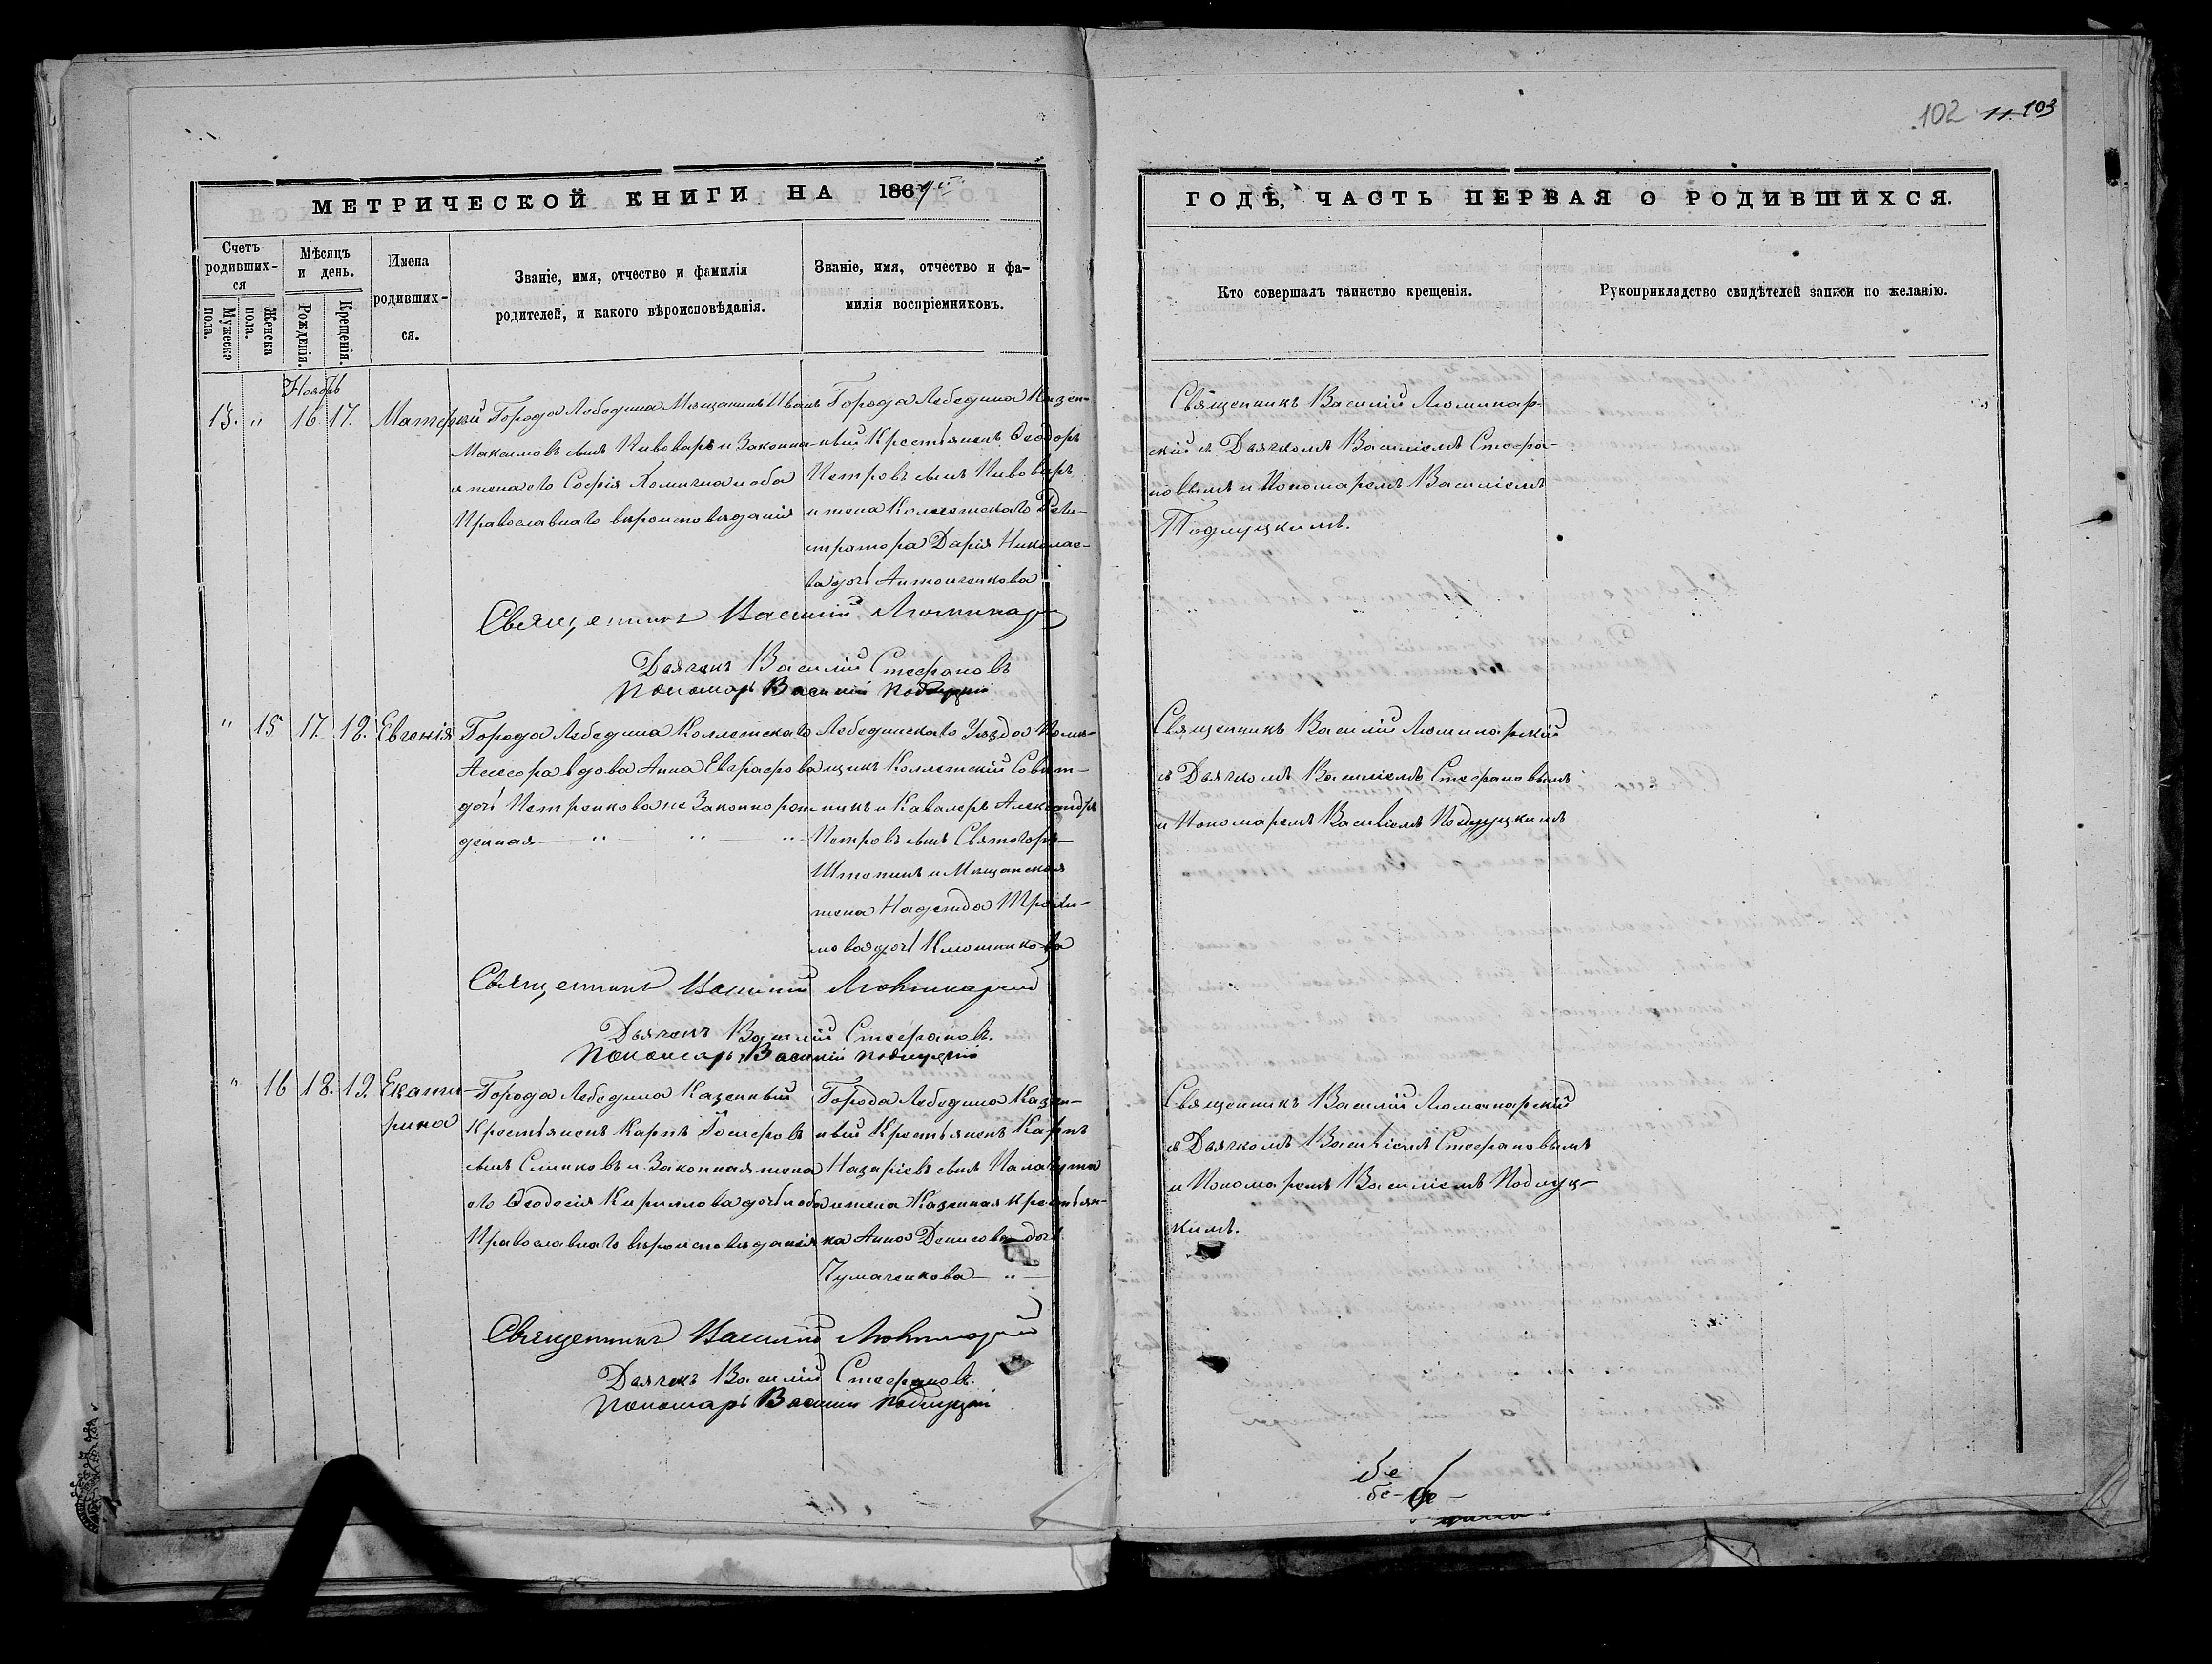 102 11. 103
МЕТРИЧЕСКОЙ КНИГИ НА 1867й
ГОДѢ, ЧАСТЬ ПЕРВАЯ О РОДИВШИХСЯ.
Счетъ родивших-ся
Мужеска пола.
Женска пола.
Мѣсяцъ и день.
Рожденія.
Крещенія.
Имена родивших-ся.
Званіе, имя, отчество и фамилія
родителей, и какого вѣроисповѣданія.
Званіе, имя, отчество и фа-
милія воспріемниковъ.
Кто совершалъ таинство крещенія.
Рукоприкладство свидѣтелей записи по желанію.
Ноябрь
13. " 16 17. Матфей
Города Лебедина Мѣщанинъ Иванъ
Максимовъ сынъ Пивоваръ и Законна-
я жена его Софія Хомична оба
Православнаго вѣроисповѣданія
Города Лебедина Казен-
ный Крестьянинъ Ѳеодоръ
Петровъ сынъ Пивоваръ
и жена Коллежскаго Реги-
стратора Дарія Николае-
ва дочь Антонченкова
Священникъ Василій Люминар-
скій съ Дьячкомъ Василіемъ Стефа-
новымъ и Пономаремъ Василіемъ
Подлуцкимъ.
Священникъ Василій Люминар
Дьячекъ Василій Стефановъ
Пономарь Василій Подлуцкій
" 15 17. 18. Евгенія
Города Лебедина Коллежскаго
Асессора вдова Анна Евграфова
дочь Петренкова не Законнорож-
денная
Лебединскаго Уѣзда Помѣ-
щикъ Коллежскій Совѣт-
никъ и Кавалеръ Александръ
Петровъ сынъ Святогоръ-
Штепинъ и Мѣщанская
жена Надежда Трофи-
мова дочь Клюшникова
Священникъ Василій Люминарскій
съ Дьячкомъ Василіемъ Стефановымъ
и Пономаремъ Василіемъ Подлуцкимъ
Священникъ Василій Люминарскій
Дьячекъ Василій Стефановъ.
Пономарь Василій Подлуцкій
" 16 18. 19. Екате-
рина
Города Лебедина Казенный
Крестьянинъ Карпъ
сынъ и Законная жена
его Ѳеодосія Кириллова дочь оба
Православнаго вѣроисповѣданія
Города Лебедина Казен-
ный Крестьянинъ Карпъ
Назаріевъ сынъ
и жена Казенная Крестьян-
ка Анна Денисова дочь
Чумаченкова
Священникъ Василій Люминарскій
съ Дьячкомъ Василіемъ Стефановымъ
и Пономаремъ Василіемъ Подлуц-
кимъ.
Священникъ Василій Люминарскій
Дьячекъ Василій Стефановъ.
Пономарь Василій Подлуцкій